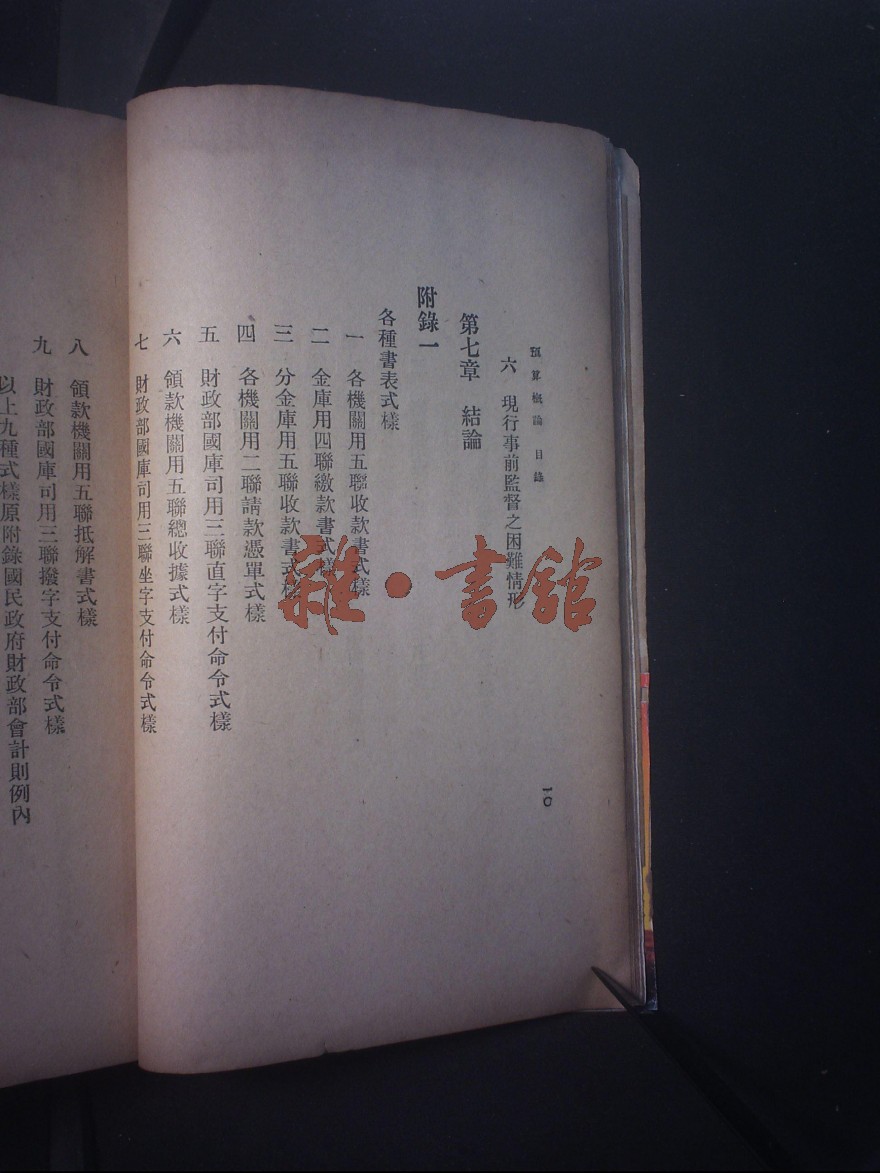 預算概論 目錄
六 現行事前監督之困難情形
第七章 結論
附錄一
各種書表式樣
一 各機關用五聯收款書式樣
二 金庫用四聯繳款書式樣
三 分金庫用五聯收款書式樣
四 各機關用二聯請款憑單式樣
五 財政部國庫司用三聯直字支付命令式樣
六 領款機關用五聯總收據式樣
七 財政部國庫司用三聯坐字支付命令式樣
一〇
八 領款機關用五聯抵解書式樣
九 財政部國庫司用三聯撥字支付命令式樣
以上九種式樣原附錄國民政府財政部會計則例內
雜·書館